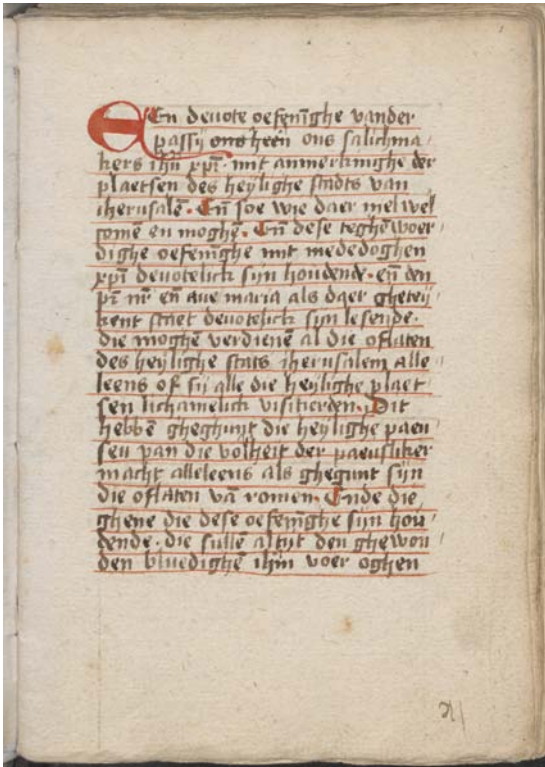 Een deuote oefenīghe vander
passij ons heeñ ons salichma
kers ihū xpī. mit anmerkinghe der
plaetsen des heylighe stadts van
iherusalē. En̄ soe wie daer niet wel
comē en moghē. En̄ dese teghēwoer
dighe oefenīghe mit mededoghen
xpī deuotelick sijn houdende. en̄ den
pr̄ nr̄ en̄ aue maria als daer gheteij
kent staet deuotelick sijn lesende.
die moghē verdienē al die oflaten
des heylighe stats iherusalem alle
leens of sij alle die heylighe plaet
sen lichamelick visitierden. Dit
hebbē gheghunt die heylighe paeu
sen van die volheit der paeuslicker
macht alleleens als ghegunt sijn
die oflaten vā romen. Ende die
ghene die dese oefenīghe sijn hou
dende. die sullē altijt den ghewon
den bluedighē ihm̄ voer oghen